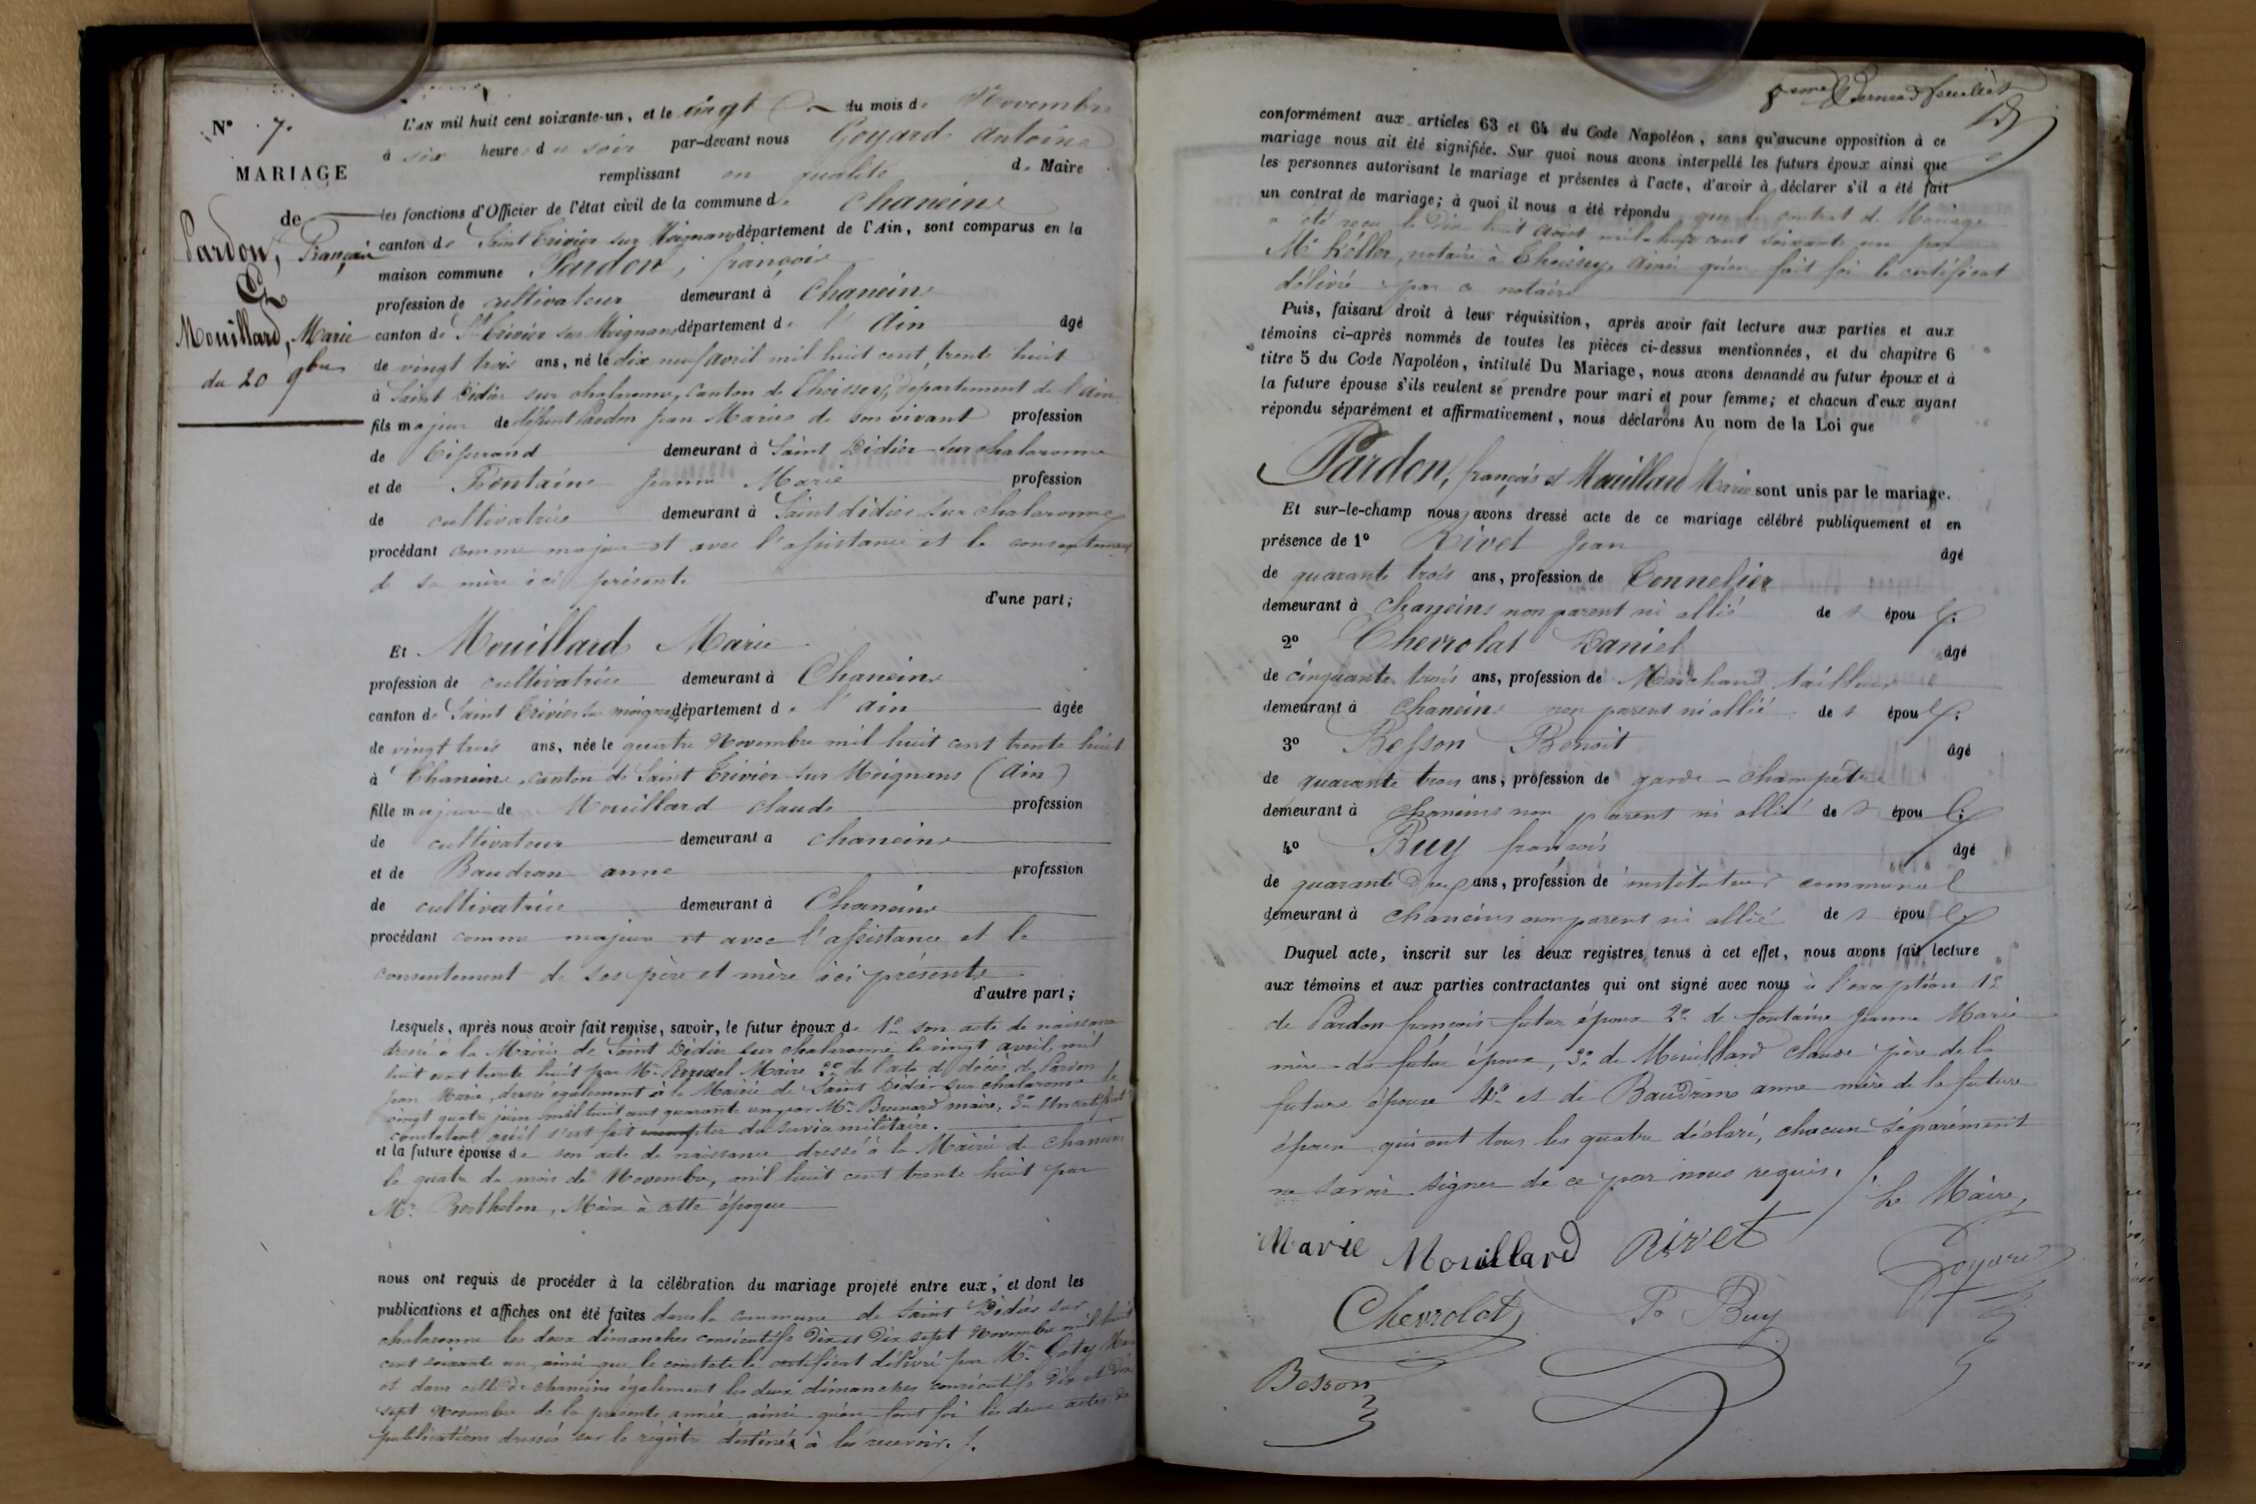 N° 7.
MARIAGE
de
Pardon, Français
Et
Mouillard, Marie
du 20 9bre
L'AN mil huit cent soixante-un, et le vingt du mois de Novembre
à six heures du soir par-devant nous Goyard Antoine
remplissant en qualité de Maire
les fonctions d'Officier de l'état civil de la commune de Chaneins
canton de Saint Trivier sur Moignans département de l'Ain, sont comparus en la
maison commune Pardon, françois
profession de cultivateur demeurant à Chaneins
canton de St Trivier sur Moignans département de l'Ain âgé
de vingt trois ans, né le dix neuf avril mil huit cent trente huit
à Saint Didier sur chalaronne, canton de Thoissey, département de l'ain
fils majeur de défunt Pardon Jean Marie de son vivant profession
de tisserand demeurant à Saint Didier sur chalaronne
et de Fontaine Jeanne Marie profession
de cultivatrice demeurant à Saint didier sur chalaronne
procédant comme majeur et avec l'assistance et le consentement
de sa mère ici présente
d'une part;
Et Mouillard Marie
profession de cultivatrice demeurant à Chaneins
canton de Saint Trivier sur moignans département de l'ain âgée
de vingt trois ans, née le quatre Novembre mil huit cent trente huit
à Chaneins, canton de Saint Trivier sur Moignans (Ain)
fille majeure de Mouillard claude profession
de cultivateur demeurant à chaneins
et de Baudran anne profession
de cultivatrice demeurant à Chaneins
procédant comme majeure et avec l'assistance et le
consentement de ses père et mère ici présents
d'autre part;
Lesquels, après nous avoir fait remise, savoir, le futur époux de 1° son acte de naissance
dressé à la Mairie de Saint Didier sur chalaronne le vingt avril mil
huit cent trente huit par Mr. Maire 2° de l'acte de décès de Pardon
jean Marie, dressé également à la Mairie de Saint Didier sur chalaronne le
vingt quatre juin mil huit cent quarante un par Mr. Bernard maire, 3° Un certificat
constatant qu'il s'est fait exempter du service militaire.
et la future épouse de son acte de naissance dressé à la Mairie de Chaneins
le quatre du mois de Novembre, mil huit cent trente huit par
Mr. Berthelon, Maire à cette époque
nous ont requis de procéder à la célébration du mariage projeté entre eux, et dont les
publications et affiches ont été faites dans la commune de Saint Didier sur
chalaronne les deux dimanches consécutifs Dix et Dix sept Novembre mil huit
cent soixante un, ainsi que le constate le certificat délivré par Mr. Maire
et dans celle de chaneins également les deux dimanches consécutifs Dix et Dix
sept Novembre de la présente année ainsi qu'en font foi les deux actes de
publications dressés sur le registre destiné à les recevoir./.
Dernier feuillet
conformément aux articles 63 et 64 du Code Napoléon, sans qu'aucune opposition à ce
mariage nous ait été signifiée. Sur quoi nous avons interpellé les futurs époux ainsi que
les personnes autorisant le mariage et présentes à l'acte, d'avoir à déclarer s'il a été fait
un contrat de mariage; à quoi il nous a été répondu que le contrat de Mariage
a été reçu le Dix huit Août mil huit cent soixante un par
Me Kéller, notaire à Thoissey, Ainsi qu'en fait foi le certificat
délivré par ce notaire
Puis, faisant droit à leur réquisition, après avoir fait lecture aux parties et aux
témoins ci-après nommés de toutes les pièces ci-dessus mentionnées, et du chapitre 6
titre 5 du Code Napoléon, intitulé Du Mariage, nous avons demandé au futur époux et à
la future épouse s'ils veulent se prendre pour mari et pour femme; et chacun d'eux ayant
répondu séparément et affirmativement, nous déclarons Au nom de la Loi que
Pardon, françois et Mouillard Marie sont unis par le mariage.
Et sur-le-champ nous avons dressé acte de ce mariage célébré publiquement et en
présence de 1° Rivet Jean âgé
de quarante trois ans, profession de Tonnelier
demeurant à Chaneins non parent ni allié des époux
2° Chevrolat Daniel âgé
de cinquante trois ans, profession de Marchand tailleur
demeurant à Chaneins non parent ni allié des époux
3° Besson Benoit âgé
de quarante trois ans, profession de garde-champêtre
demeurant à chaneins non parent ni allié des époux
4° Buy françois âgé
de quarante Deux ans, profession de instituteur communal
demeurant à chaneins non parent ni allié des époux
Duquel acte, inscrit sur les deux registres tenus à cet effet, nous avons fait lecture
aux témoins et aux parties contractantes qui ont signé avec nous à l'exception 1°
de Pardon françois futur époux 2° de fontaine Jeanne Marie
mère du futur époux, 3° de Mouillard claude père de la
future épouse 4° et de Baudran anne mère de la future
épouse qui ont tous les quatre déclaré, chacun séparément
ne savoir signer de ce par nous requis./.
Le Maire,
Marie Mouillard Rivet
Goyard
Chevrolat F. Buy
Besson